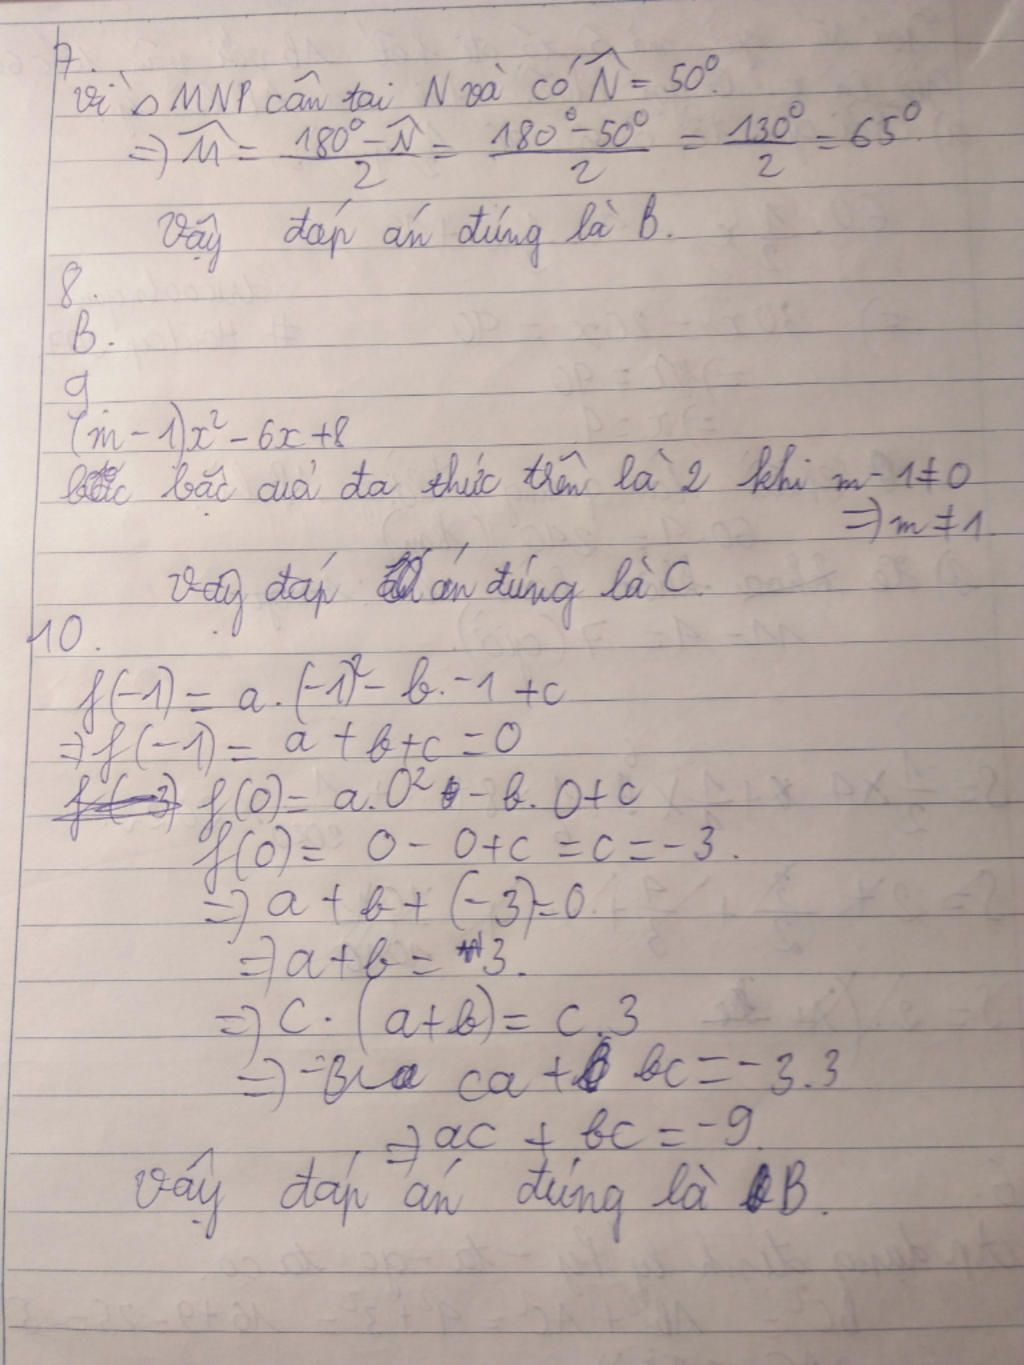 7.
Vì △MNP cân tại N và có N̂ = 50⁰.
=) M̂ = (180⁰ - N̂)/2 = (180⁰ - 50⁰)/2 = 130⁰/2 = 65⁰.
Vậy đáp án đúng là B.
8.
B.
9
(m - 1)x² - 6x + 8
bậc quả đa thức trên là 2 khi m - 1 ≠ 0
=) m ≠ 1.
Vậy đáp án đúng là C.
10.
f(-1) = a . (-1)² - b . -1 + c
=) f(-1) = a + b + c = 0
f(0) = a . 0² - b . 0 + c
f(0) = 0 - 0 + c = c = -3.
=) a + b + (-3) = 0.
=) a + b = 3.
=) C . (a + b) = c . 3
=) ca + bc = -3 . 3
=) ac + bc = -9.
Vậy đáp án đúng là B.